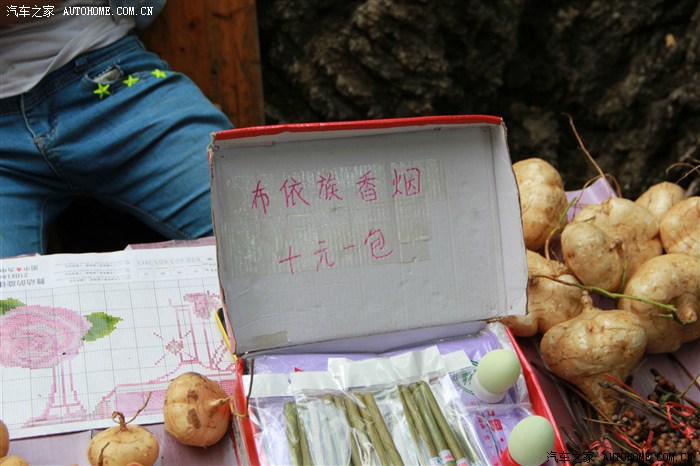 汽车之家 AUTOHOME.COM.CN
布依族香烟
十元一包
汽车之家 AUTOHOME.COM.CN